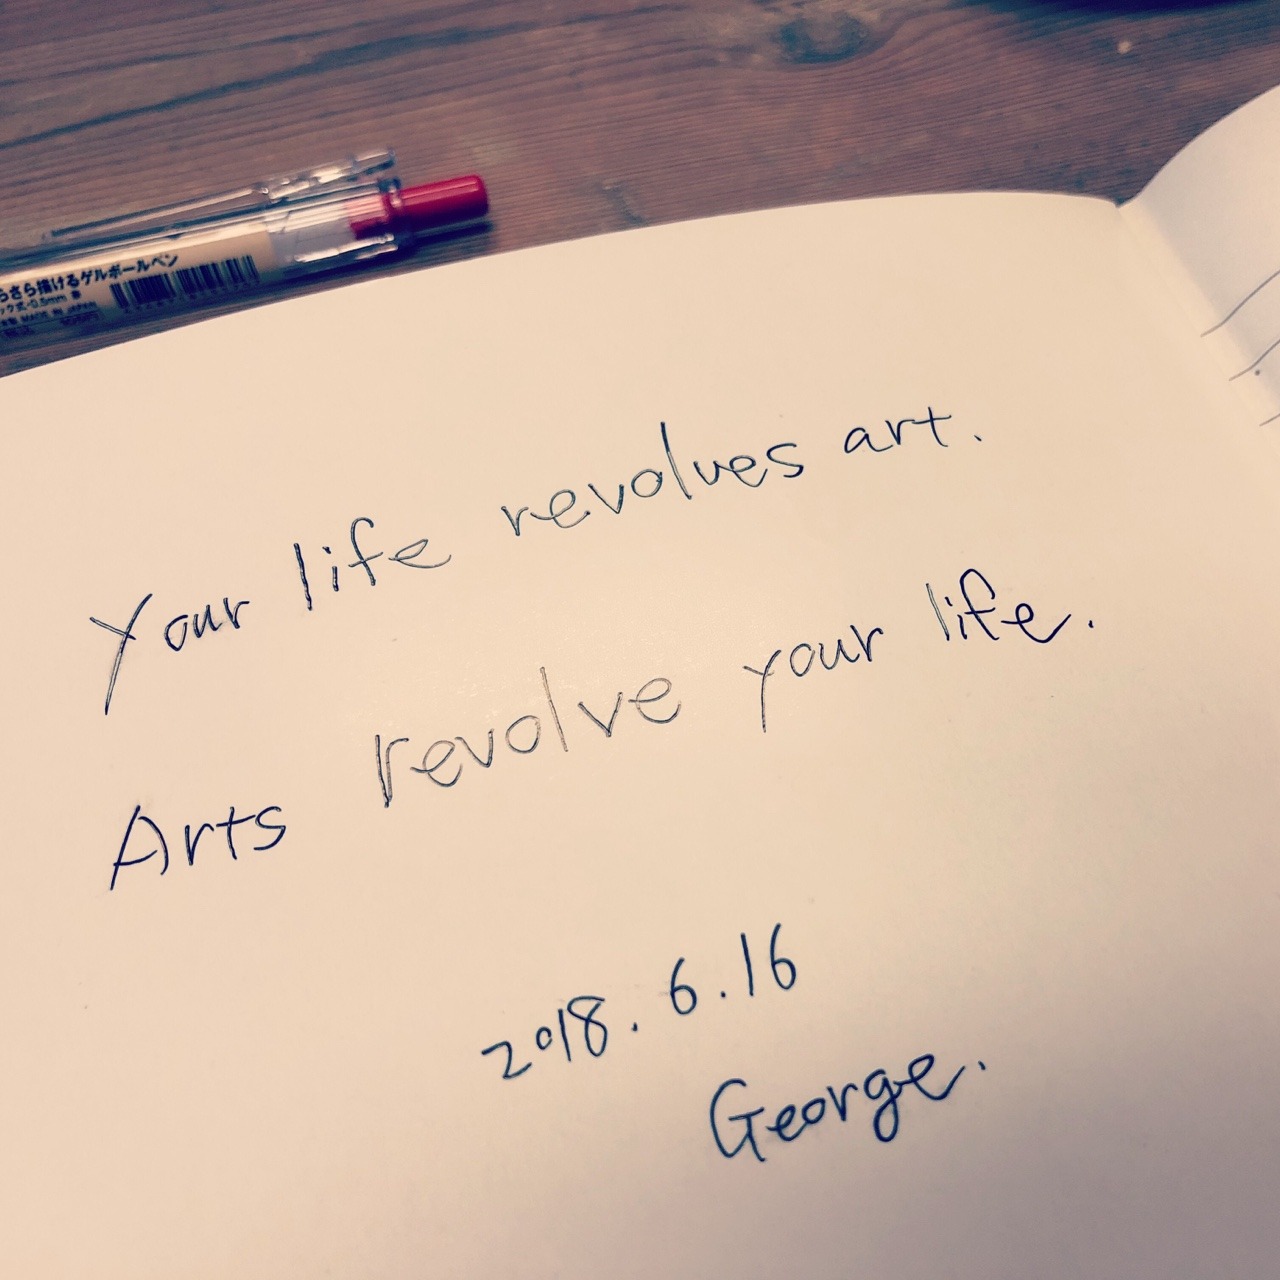 さら描けるゲルボールペン
0.5mm
MADE IN JAPAN
Your life revolves art.
Arts revolve your life.
2018.6.16
George.